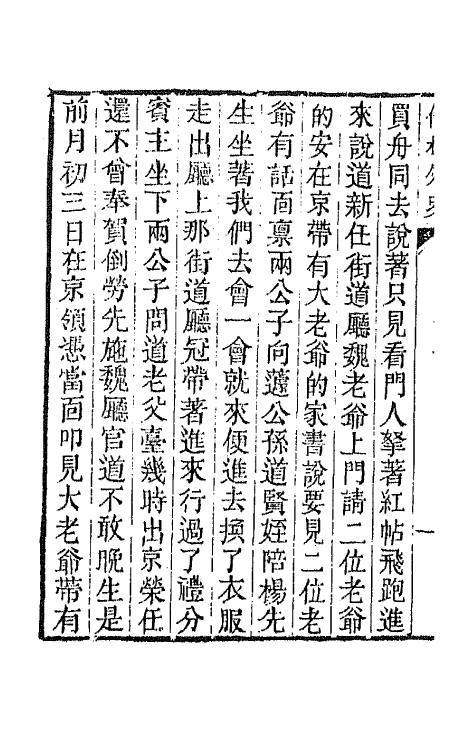 儒林外史
買舟同去說著只見看門人拏著紅帖飛跑進
來說道新任街道廳魏老爺上門請二位老爺
的安在京帶有大老爺的家書說要見二位老
爺有話面稟兩公子向蘧公孫道賢姪陪楊先
生坐著我們去會一會就來便進去換了衣服
走出廳上那街道廳冠帶著進來行過了禮分
賓主坐下兩公子問道老父臺幾時出京榮任
還不曾奉賀倒勞先施魏廳官道不敢晚生是
前月初三日在京領憑當面叩見大老爺帶有